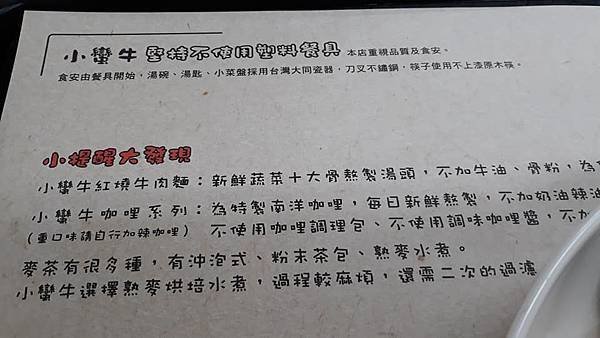 小蠻牛 堅持不使用塑料餐具 本店重視品質及食安。
食安由餐具開始，湯碗、湯匙、小菜盤採用台灣大同瓷器，刀叉不鏽鋼，筷子使用不上漆原木筷。
小提醒大發現
小蠻牛紅燒牛肉麵：新鮮蔬菜十大骨熬製湯頭，不加牛油、骨粉，為
小蠻牛咖哩系列：為特製南洋咖哩，每日新鮮熬製，不加奶油辣油
（重口味請自行加辣咖哩） 不使用咖哩調理包、不使用調味咖哩醬，不加
麥茶有很多種，有沖泡式、粉末茶包、熟麥水煮。
小蠻牛選擇熟麥烘焙水煮，過程較麻煩，還需二次的過濾